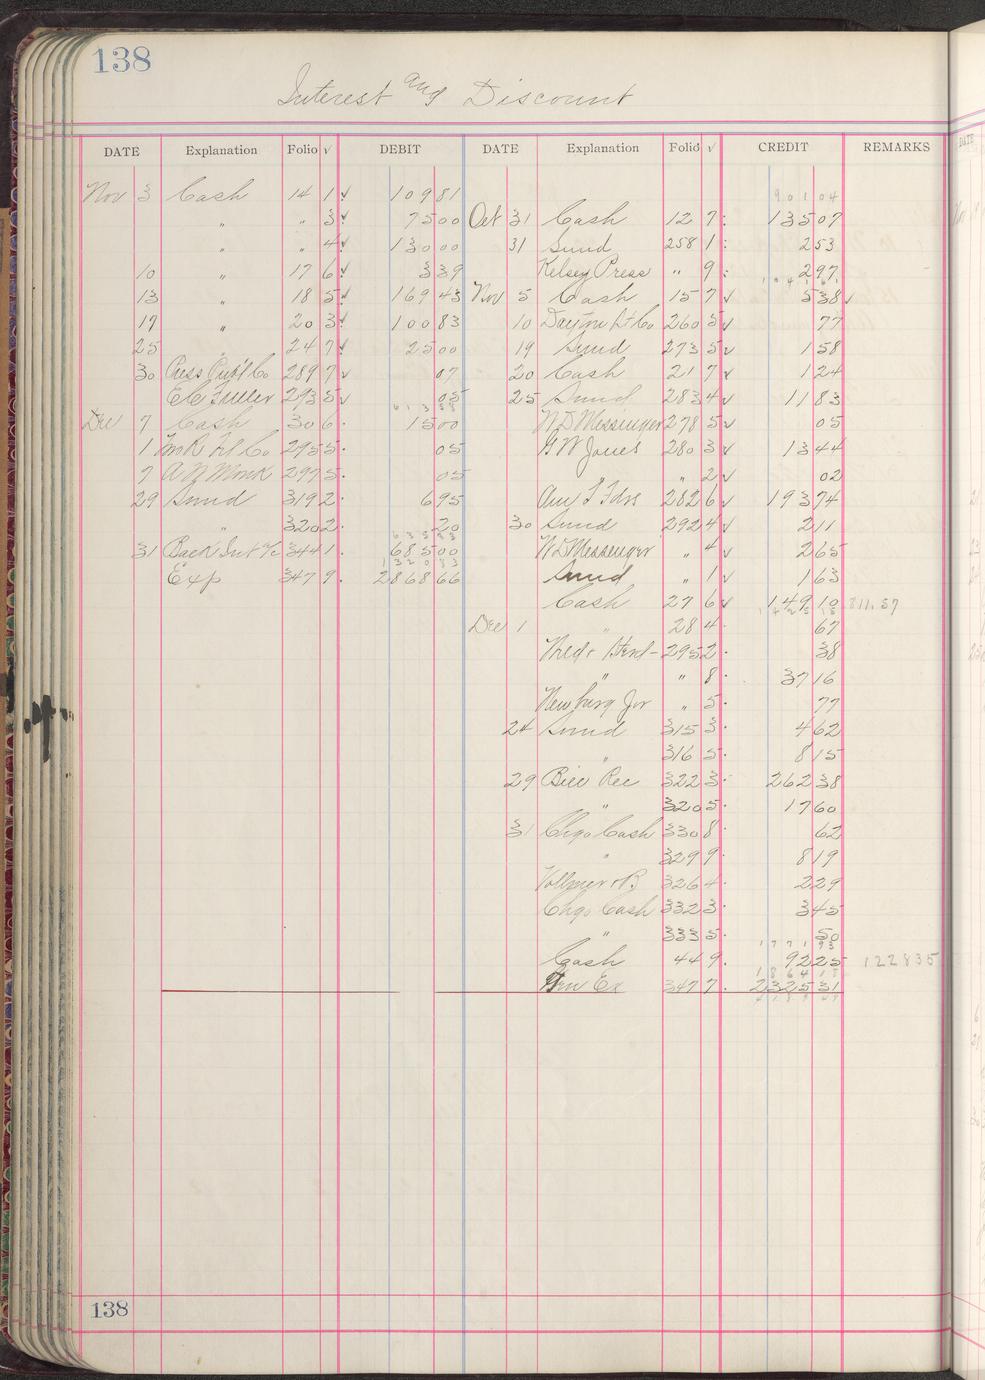 138
Interest and Discount
DATE Explanation Folio √ DEBIT DATE Explanation Folio √ CREDIT REMARKS
Nov 3 Cash 14 1 √ 109 81
901 04
" " 3 √ 75 00 Oct 31 Cash 12 7 : 135 07
" " 4 √ 130 00 31 Sund 258 1 : 2 53
10 " 17 6 √ 3 39 Kelsey Press " 9 : 2 97
13 " 18 5 √ 169 43 Nov 5 Cash 15 7 √ 5 38 √
17 " 20 3 √ 100 83 10 Dayton Lt Co 260 5 √ 77
25 " 24 7 √ 25 00 19 Sund 273 5 √ 1 58
30 Press Pub'l Co 289 7 √ 07 20 Cash 21 7 √ 1 24
E C Fuller 293 5 √ 05 25 Sund 283 4 √ 11 83
613 58
Dec 7 Cash 30 6 · 15 00 W D Messinger 278 5 √ 05
1 295 5 · 05 G W Jones 280 3 √ 13 44
7 A N Monk 297 5 · 05 " 2 √ 02
29 Sund 319 2 · 6 95 Am T Fdrs 282 6 √ 193 74
" 320 2 · 20 30 Sund 292 4 √ 2 11
635 83
31 Back Int a/c 344 1 · 685 00 W D Messenger " 4 √ 2 65
1320 83
Exp 347 9 · 2868 66 Sund " 1 √ 1 63
Cash 27 6 √ 149 10 811.57
Dec 1 " 28 4 · 67
295 2 · 38
" " 8 · 37 16
Newburg Jor " 5 · 77
24 Sund 315 3 · 4 62
" 316 5 · 8 15
29 Bill Rec 322 3 · 262 38
" 320 5 · 17 60
31 Chgo Cash 330 8 · 62
" 329 9 · 8 19
Vollmer & B 326 4 · 2 29
Chgo Cash 332 3 · 3 45
" 333 5 · 50
1771 93
Cash 44 9 · 92 25 1228 35
1864 18
Gen Ex 347 7 · 2325 31
4189 49
138